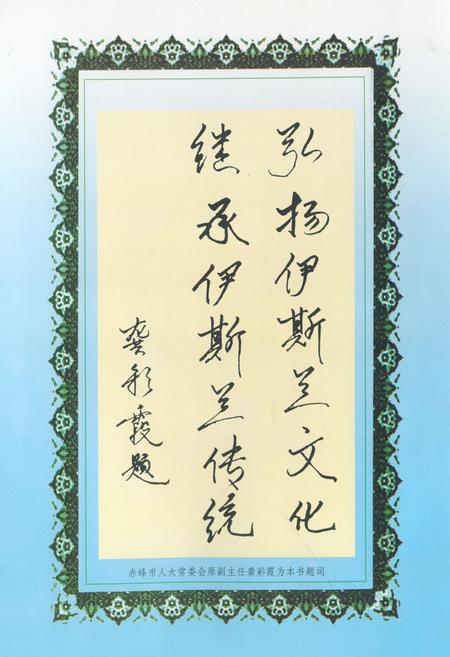 弘扬伊斯兰文化
继承伊斯兰传统
龚彩霞题
赤峰市人大常委会原副主任龚彩霞为本书题词